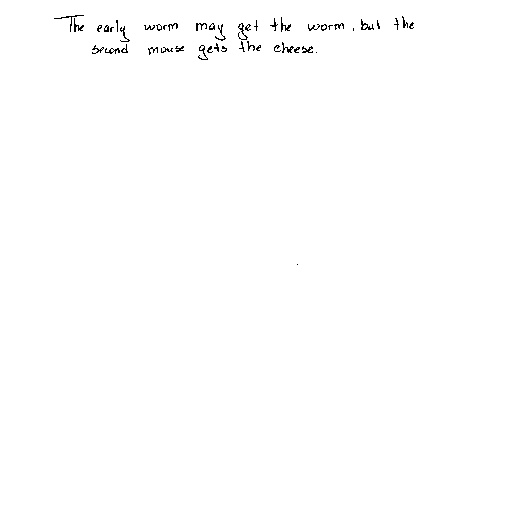 The early worm may get the worm, but the
second mouse gets the cheese.